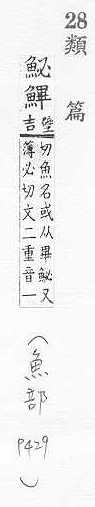 28
類篇
鮅
壁吉
切魚名或从畢鮅又
薄必切文二重音一
(魚部 P429)